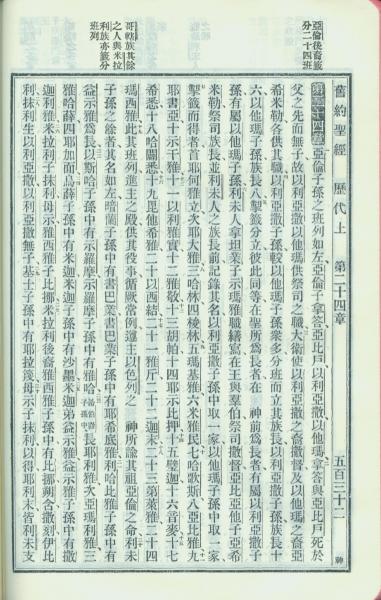 亞倫後裔籤
分二十四班
哥轄族其餘
之人與米拉
利族亦籤分
班列
舊約聖經 歷代上 第二十四章 五百三十二 神
第二十四章 亞倫子孫之班列如左亞倫子拿答亞比戶以利亞撒以他瑪拿答與亞比戶死於
父之先而無子故以利亞撒以他瑪供祭司之職大衛使以利亞撒之裔撒督及以他瑪之裔亞
希米勒各供其職以利亞撒子孫較以他瑪子孫眾多分班而立其族長以利亞撒子孫族長十
六以他瑪子孫族長八掣籤分立彼此同等在聖所爲長者在 神前爲長者有屬以利亞撒子
孫有屬以他瑪子孫利未人拿坦業子示瑪雅職繕寫在王與羣伯祭司撒督亞比亞他子亞希
米勒祭司族長並利未人之族長前記錄其名以利亞撒子孫中取一家以他瑪子孫中取一家
掣籤而得者首耶何雅立次耶大雅三哈林四梭林五瑪基雅六米雅民七哈歌斯八亞比雅九
耶書亞十示千雅十一以利雅實十二雅敬十三胡帕十四耶示比押十五璧迦十六音麥十七
希悉十八哈闢悉十九毘他希雅二十以西結二十一雅斤二十二迦末二十三第萊雅二十四
瑪西雅此其班列進主之殿供其役事循厥常例遵主以色列之 神所諭其祖亞倫之命利未
子孫之餘者其名如左暗蘭子孫中有書巴業書巴業子孫中有耶希底雅利哈比雅子孫中有
益示雅爲長以斯哈子孫中有示羅摩示羅摩子孫中有雅哈 長耶利雅次亞瑪利雅三
雅哈薛四耶加面烏薛子孫中有米迦米迦子孫中有沙密米迦弟益示雅益示雅子孫中有撒
迦利雅米拉利子抹利母示雅西雅子比挪米拉利後裔雅西雅子孫中有比挪朔含撒刻伊比
利抹利生以利亞撒以利亞撒無子基士子孫中有耶拉篾母示子抹利以得耶利末皆利未支